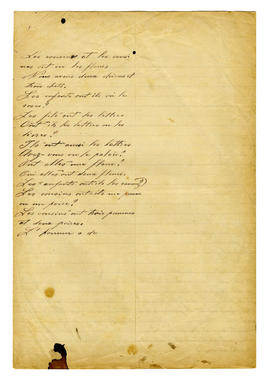 Les cousines et les cousi
nes ont vu les fleurs
Nous avons deux chiens et
trois chats.
Les enfants ont ils vu le
roses?
Les fils ont les lettres
Ont ils les lettres ou les
livres?
Ils ont aussi les lettres
Avez-vous vu le palais?
Ont elles une plume?
Oui elles ont deux plumes.
Les enfants ont ils les
Les cousins ont ils une
ou une poire?
Les cousins ont trois pommes
et deux poires.
L'homme a de